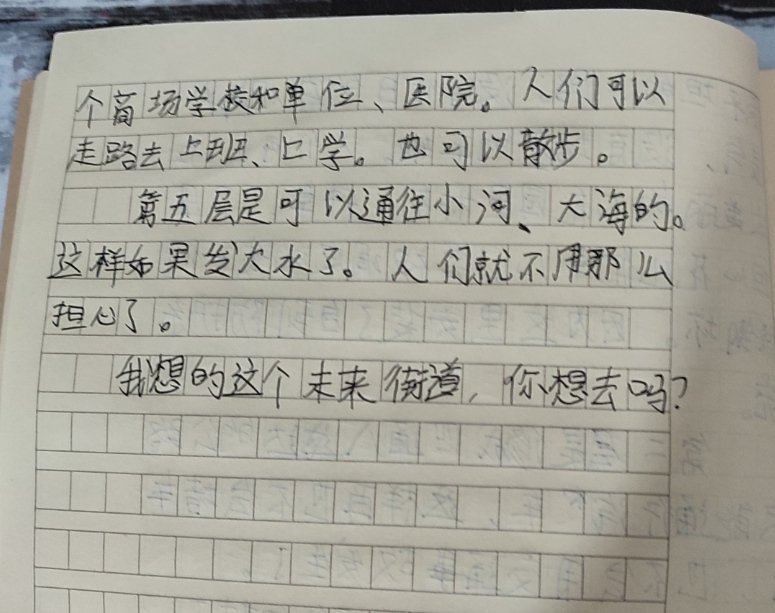 个商场学校和单位、医院。人们可以
走路去上班、上学。也可以散步。
第五层是可以通往小河、大海的。
这样如果发大水了。人们就不用那么
担心了。
我想的这个未来街道，你想去吗？